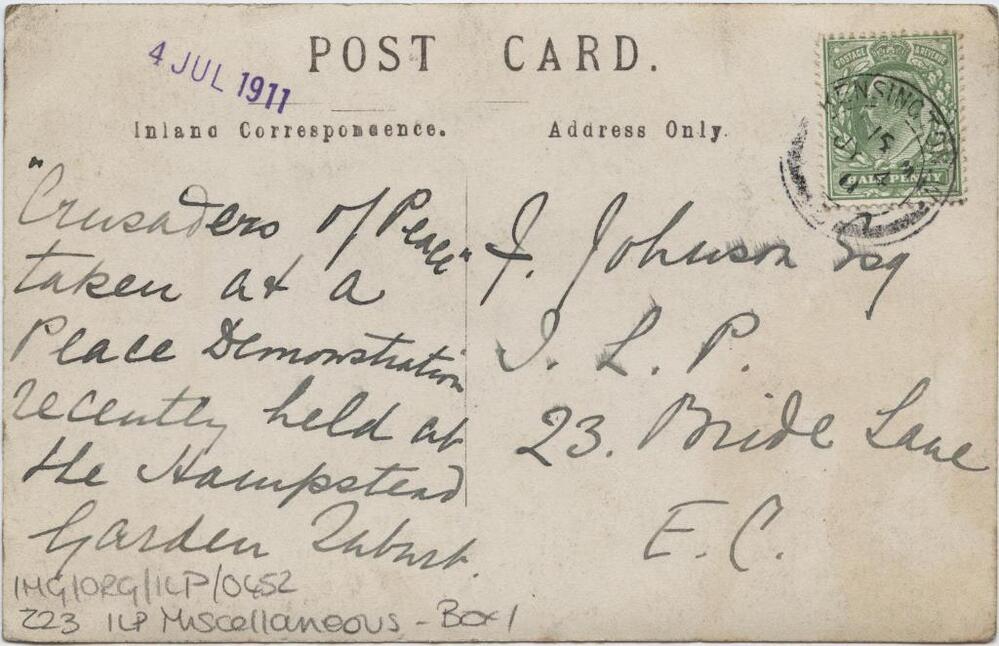 POST CARD.
4 JUL 1911
Inland Correspondence.
Address Only.
POSTAGE REVENUE
HALFPENNY
KENSINGTON
"Crusaders of Peace"
taken at a
Peace Demonstration
recently held at
the Hampstead
Garden Suburb.
F. Johnson Esq
I. L. P.
23. Bride Lane
E. C.
IMG/ORG/ILP/0452
223 ILP Miscellaneous - Box 1